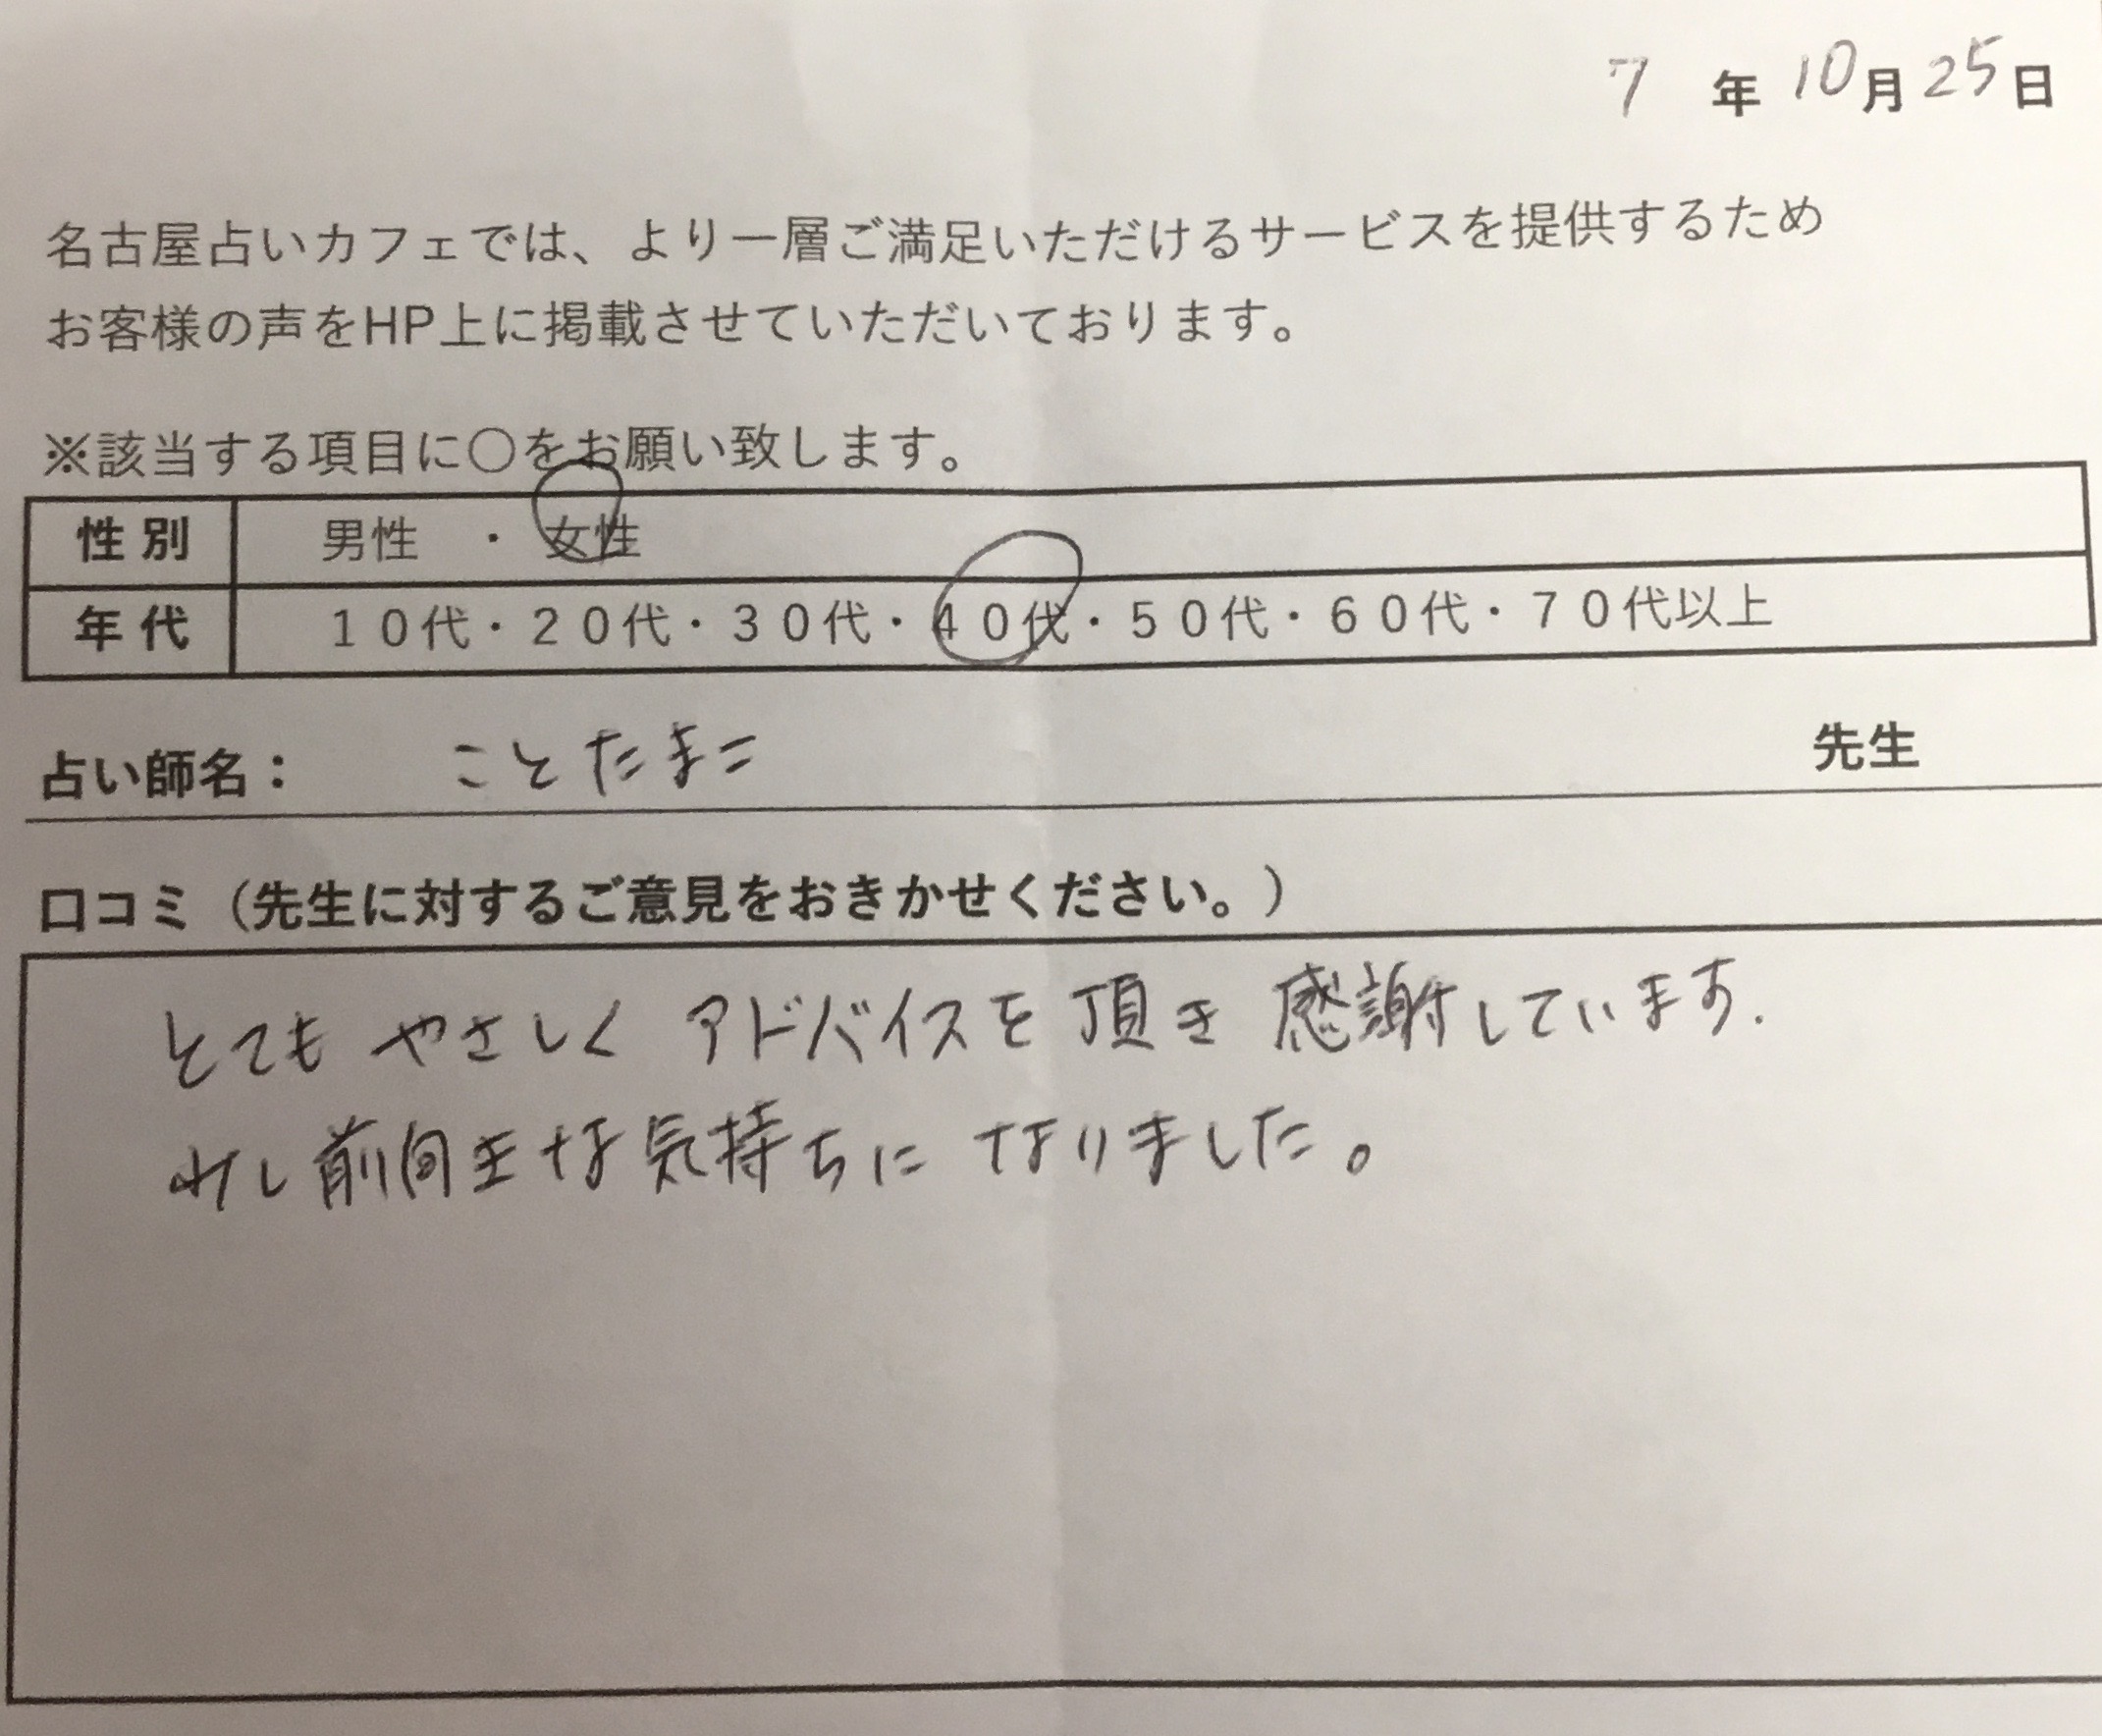 7 年 10月 25日
名古屋占いカフェでは、より一層ご満足いただけるサービスを提供するため
お客様の声をHP上に掲載させていただいております。
※該当する項目に〇をお願い致します。
性別 男性 ・ 女性
年代 10代・20代・30代・40代・50代・60代・70代以上
占い師名： ことたまこ 先生
口コミ（先生に対するご意見をおきかせください。）
とても やさしく アドバイスを 頂き 感謝しています.
前向きな気持ちに なりました。